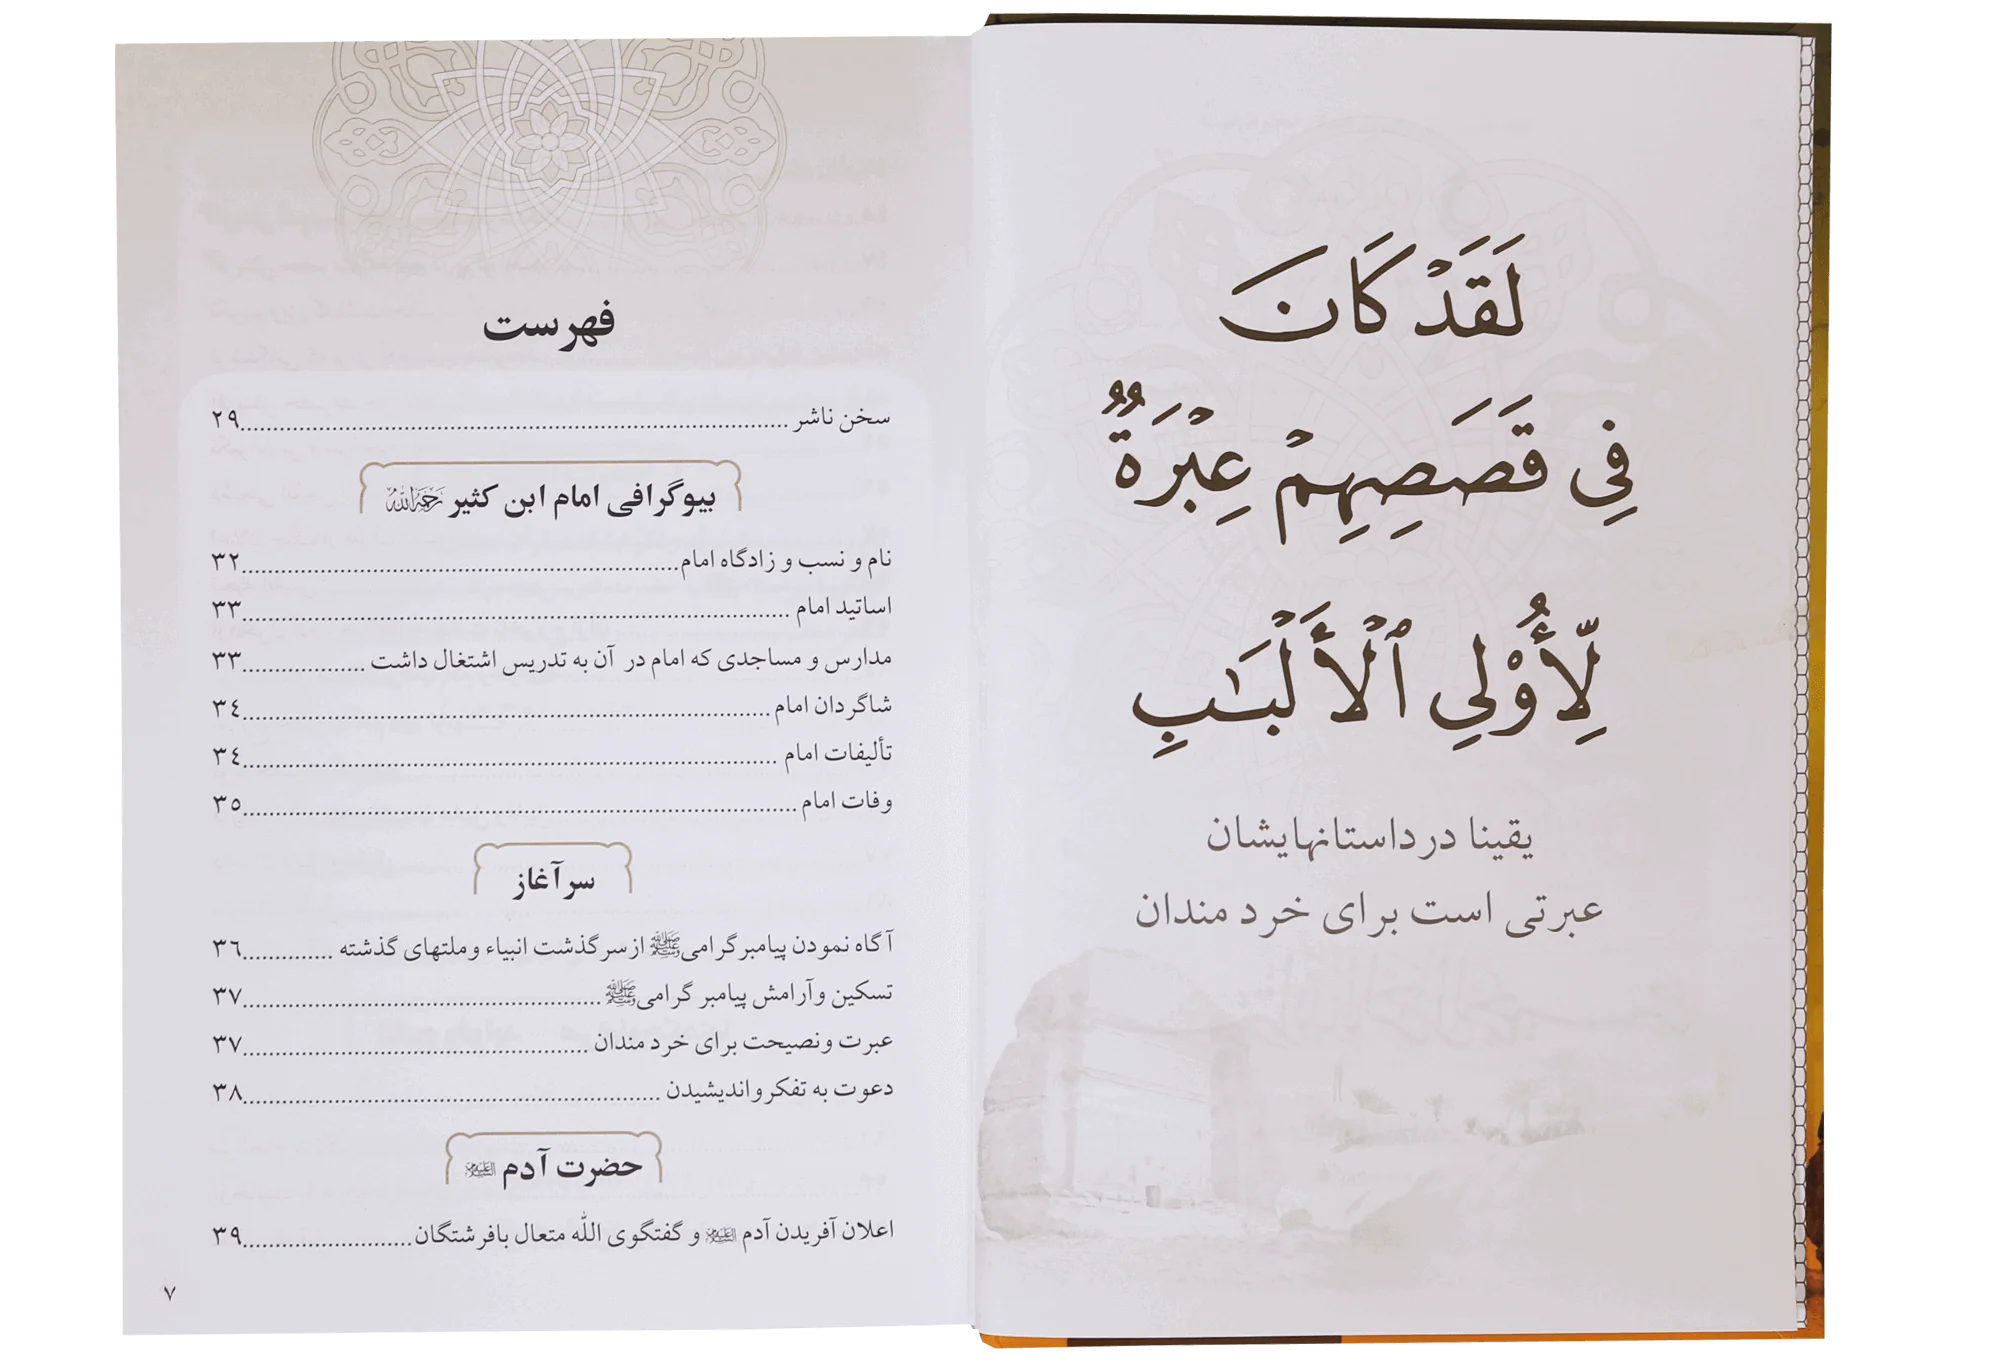 لَقَدْ كَانَ
فِي قَصَصِهِمْ عِبْرَةٌ
لِّأُوْلِي ٱلْأَلْبَـٰبِ
یقینا در داستانهایشان
عبرتی است برای خرد مندان
فهرست
سخن ناشر ........ ۲۹
بیوگرافی امام ابن کثیر رَحِمَهُ اللَّهُ
نام و نسب و زادگاه امام ........ ۳۲
اساتید امام ........ ۳۳
مدارس و مساجدی که امام در آن به تدریس اشتغال داشت ........ ۳۳
شاگردان امام ........ ٣٤
تألیفات امام ........ ٣٤
وفات امام ........ ٣٥
سرآغاز
آگاه نمودن پیامبرگرامی ﷺ از سرگذشت انبیاء وملتهای گذشته ........ ٣٦
تسکین وآرامش پیامبر گرامی ﷺ ........ ۳۷
عبرت ونصیحت برای خرد مندان ........ ۳۷
دعوت به تفکر واندیشیدن ........ ۳۸
حضرت آدم عليه السلام
اعلان آفریدن آدم عليه السلام و گفتگوی الله متعال بافرشتگان ........ ۳۹
۷